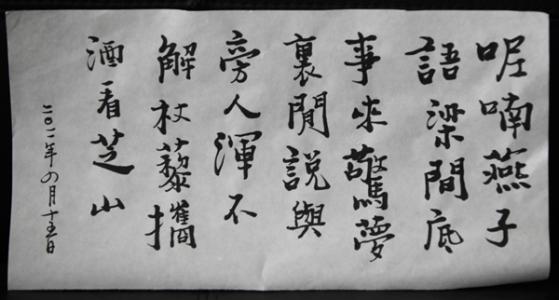 呢喃燕子
語梁間底
事來驚夢
裏閒說與
旁人渾不
解杖藜攜
酒看芝山
二〇一一年四月十五日